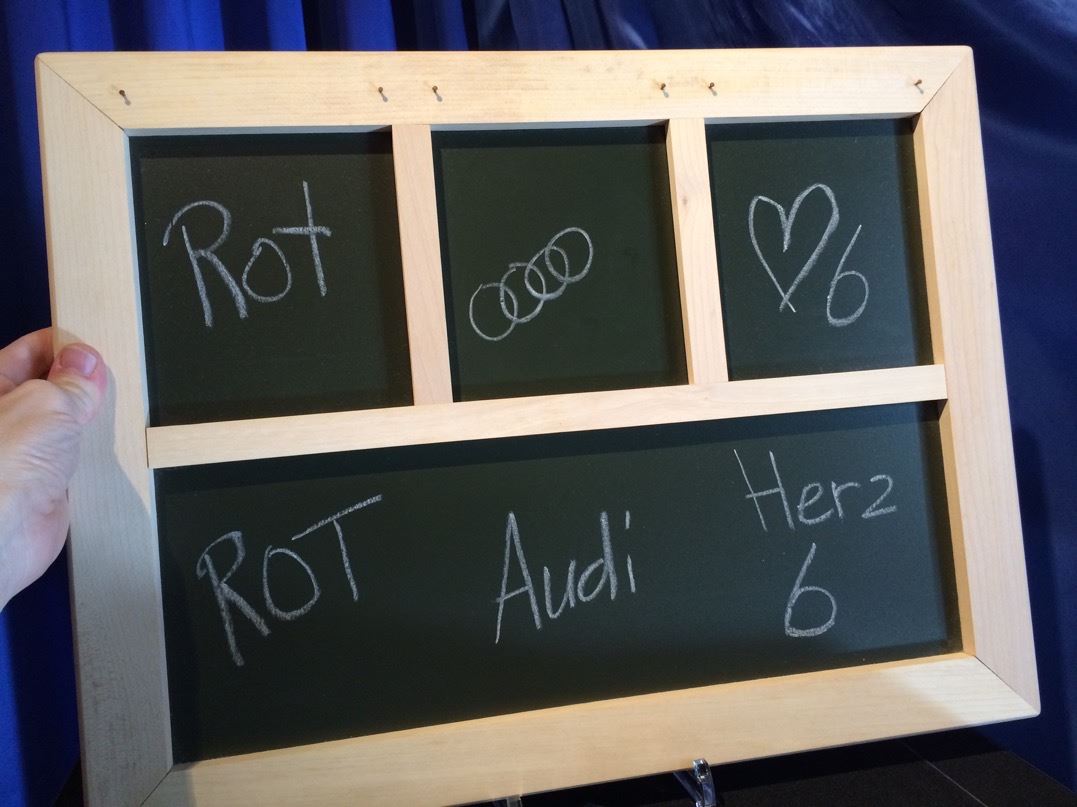 Rot
♡6
ROT Audi Herz
6